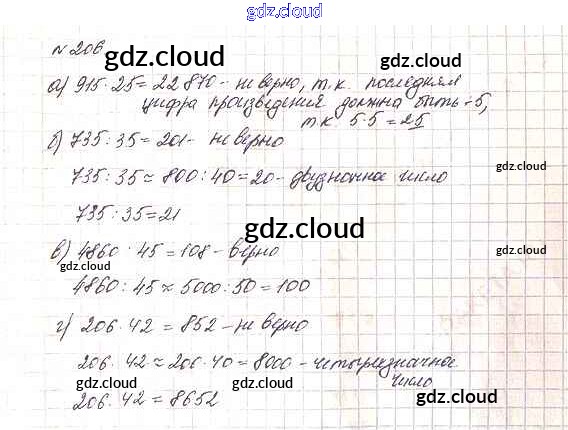 gdz.cloud
№ 206
gdz.cloud gdz.cloud
а) 915 · 25 = 22 870 - не верно, т.к. последняя
цифра произведения должна быть - 5,
т.к. 5·5 = 25
б) 735 : 35 = 201 - не верно
gdz.cloud
735 : 35 ≈ 800 : 40 = 20 - двузначное число
735 : 35 = 21
gdz.cloud
в) 4860 : 45 = 108 - верно
gdz.cloud gdz.cloud
4860 : 45 ≈ 5000 : 50 = 100
г) 206 · 42 = 852 - не верно
206 · 42 ≈ 200 · 40 = 8000 - четырехзначное
число
gdz.cloud gdz.cloud gdz.cloud
206 · 42 = 8652
gdz.cloud